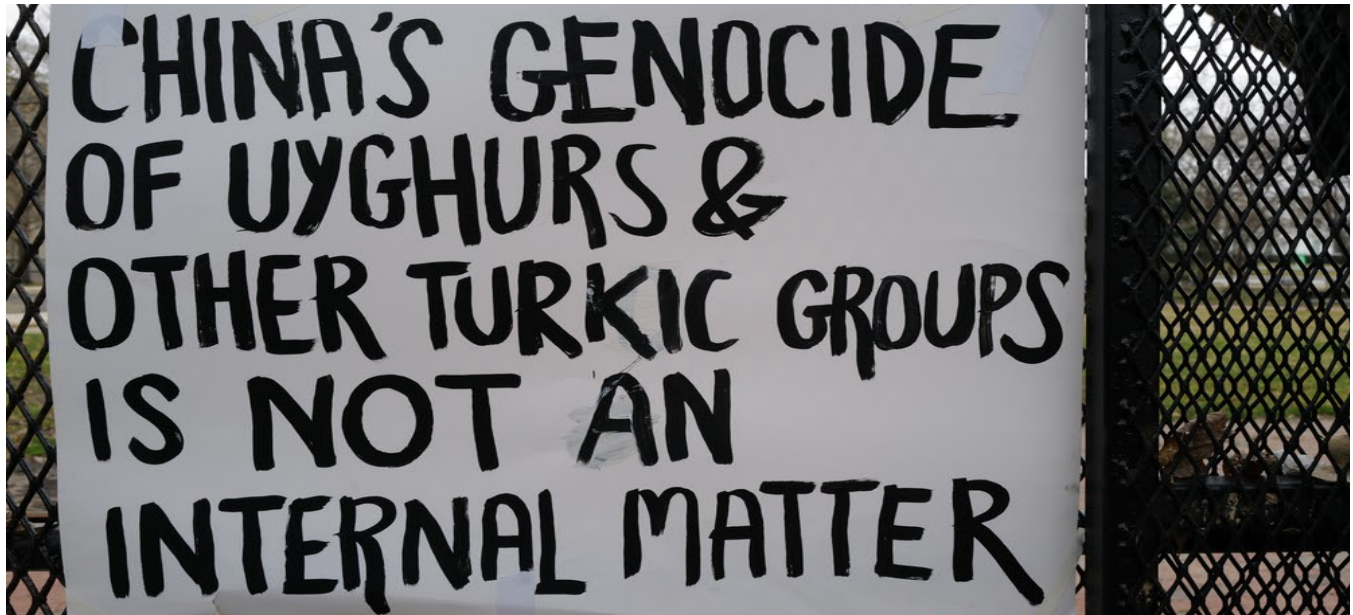 CHINA'S GENOCIDE
OF UYGHURS &
OTHER TURKIC GROUPS
IS NOT AN
INTERNAL MATTER